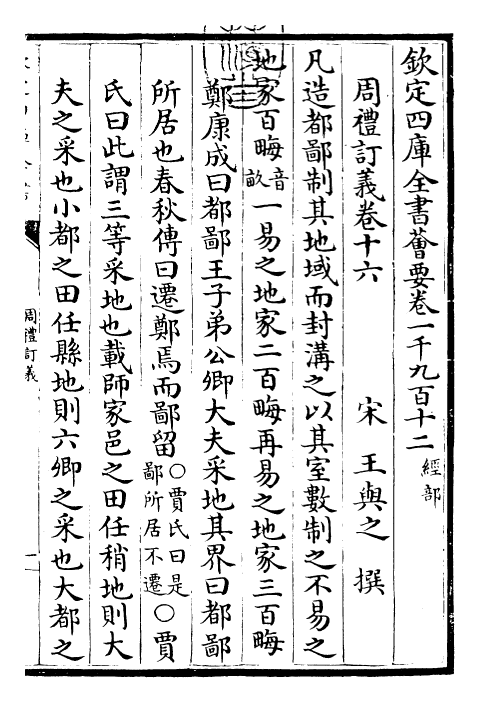 欽定四庫全書薈要卷一千九百十二 經部
周禮訂義卷十六 宋 王與之 撰
凡造都鄙制其地域而封溝之以其室數制之不易之
地家百晦音畝一易之地家二百晦再易之地家三百晦
鄭康成曰都鄙王子弟公卿大夫采地其界曰都鄙
所居也春秋傳曰遷鄭焉而鄙留○賈氏曰是鄙所居不遷○賈
氏曰此謂三等采地也載師家邑之田任稍地則大
夫之采也小都之田任縣地則六卿之采也大都之
周禮訂義
一